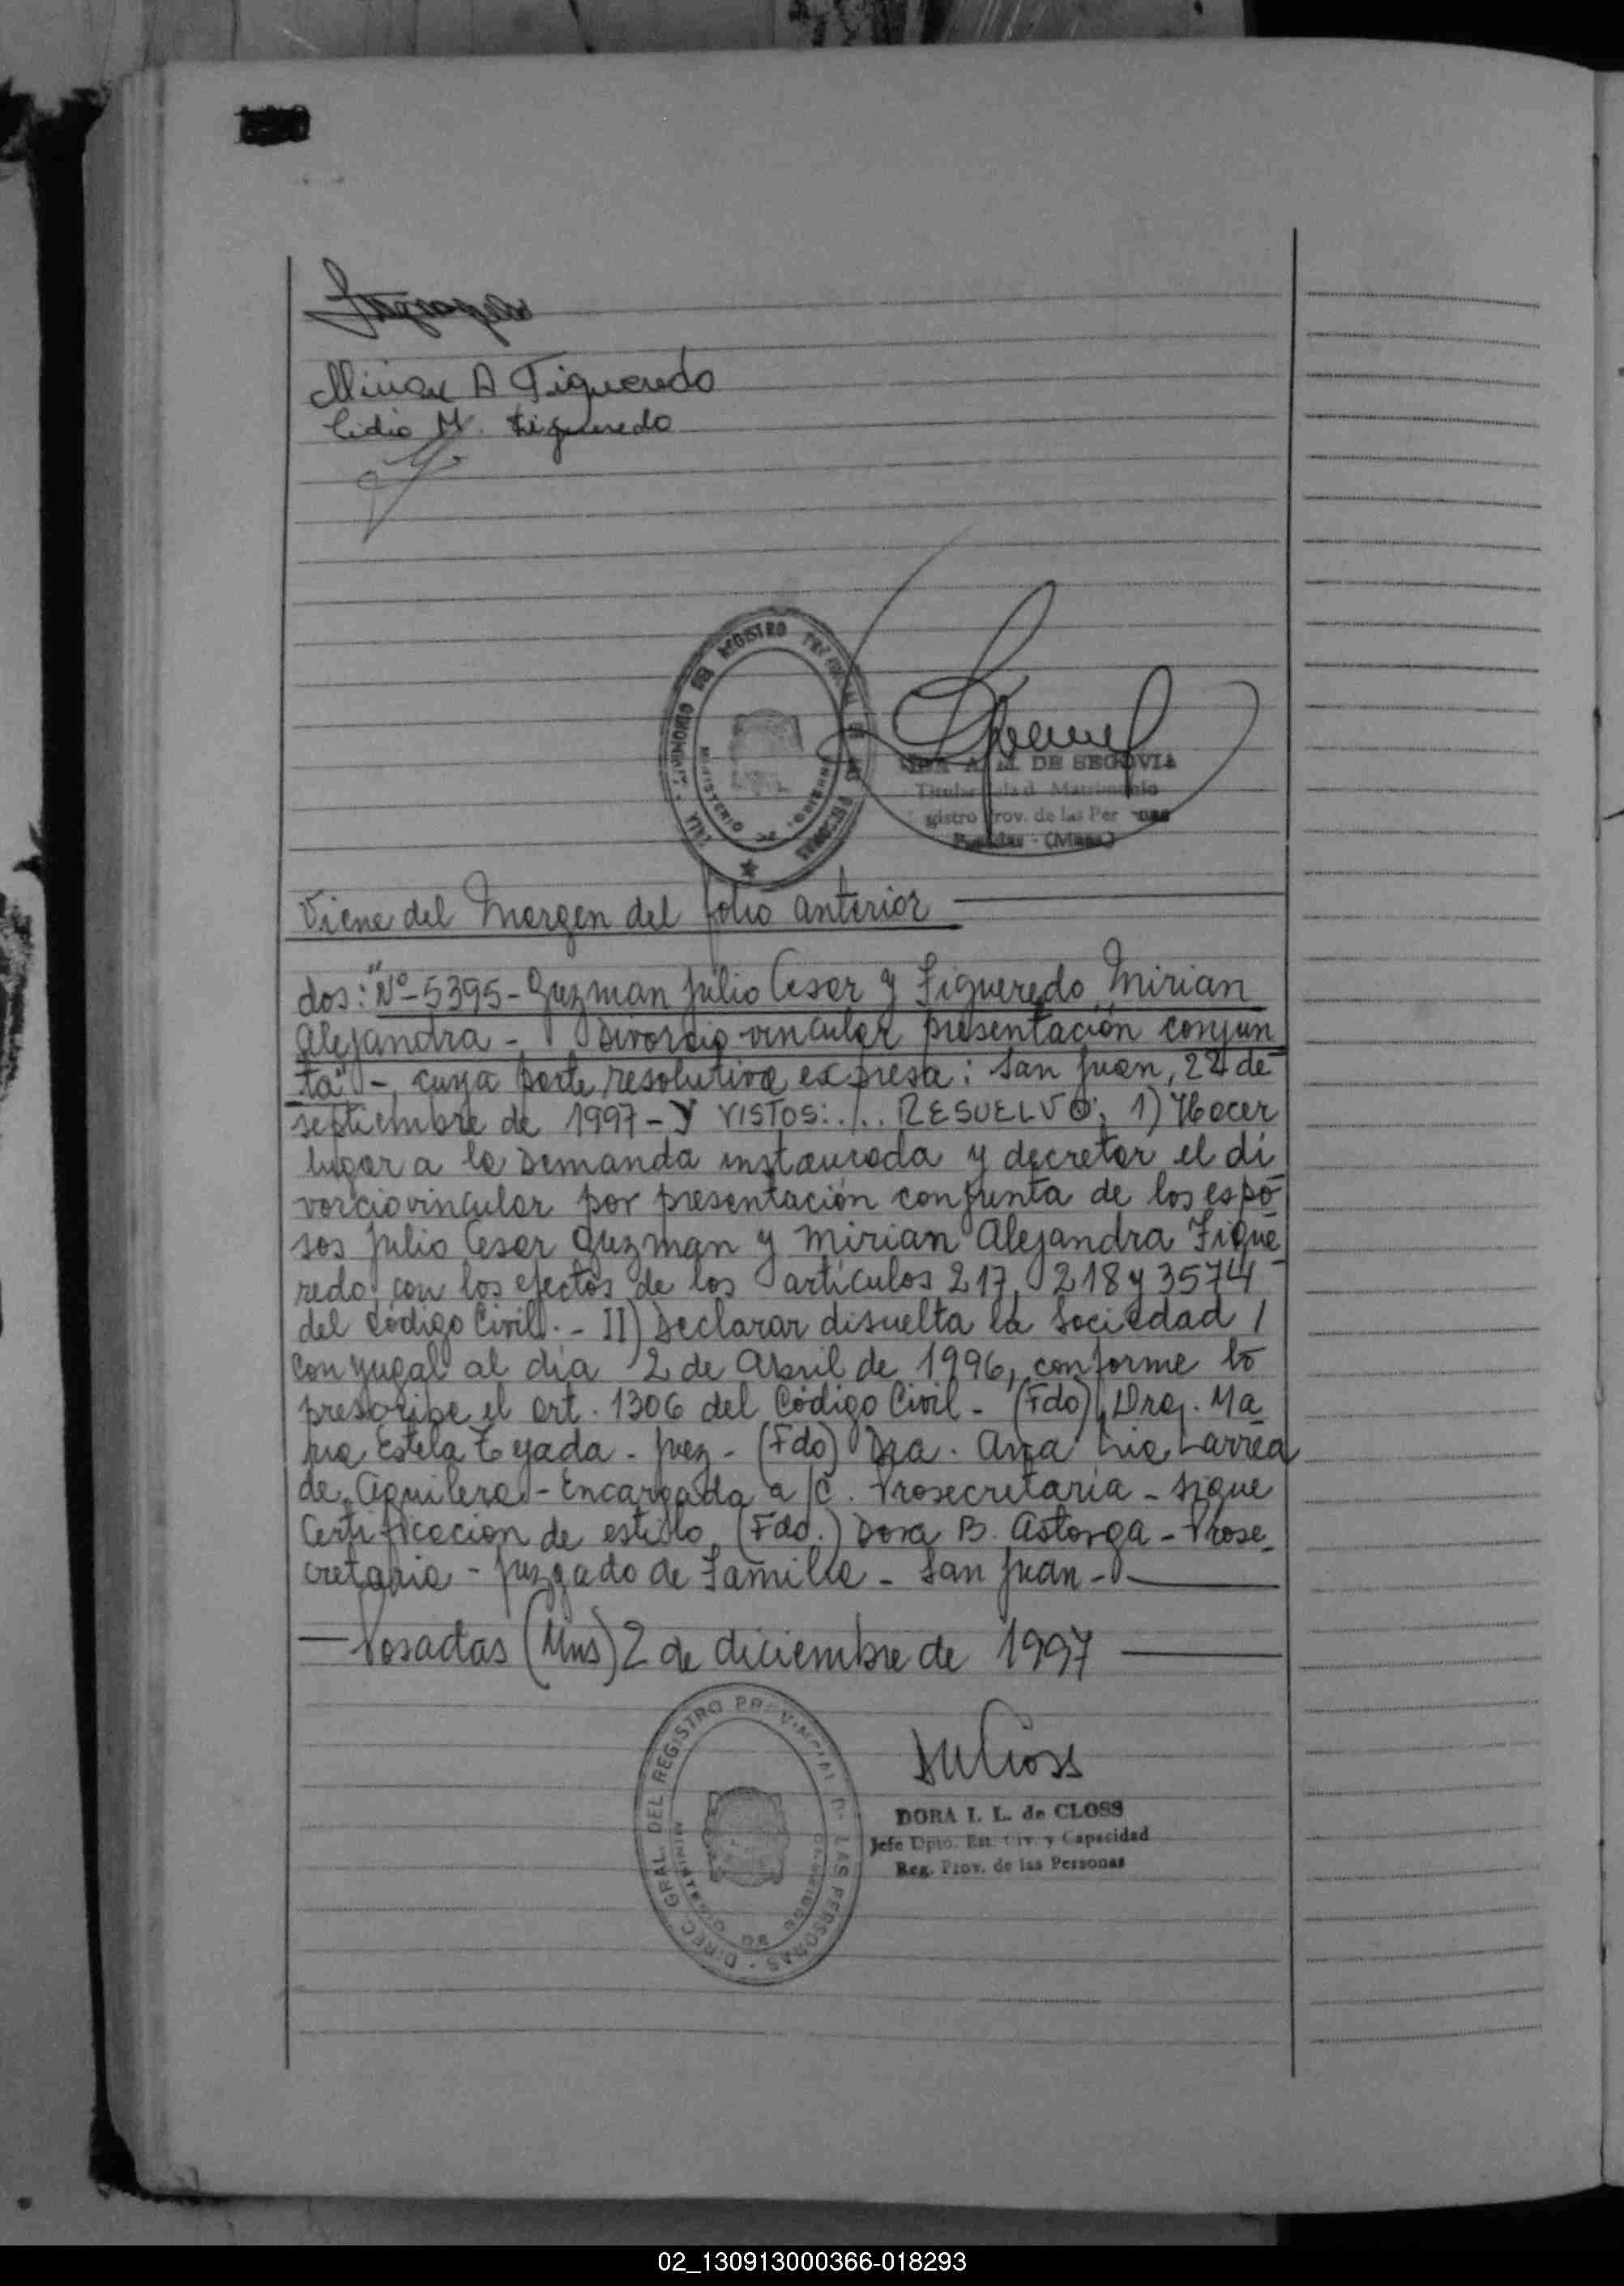 Mirian A Figueredo
Lidia M. Figueredo
DIRECCION GRAL. DEL REGISTRO PROVINCIAL DE LAS PERSONAS
MINISTERIO DE GOBIERNO
A. M. DE SEGOVIA
Titular Sala d Matrimonio
gistro Prov. de las Per nas
Posadas - (Mnes)
Viene del Margen del folio anterior
dos: "Nº-5395- Guzman Julio Cesar y Figueredo Mirian
Alejandra - Divorcio vincular presentación conjun
ta" -, cuya parte resolutiva expresa: San Juan, 22 de
septiembre de 1997 - Y VISTOS: ./.. RESUELVO: 1) Hacer
lugar a la Demanda instaurada y decretar el di
vorcio vincular por presentación conjunta de los espo-
sos Julio Cesar Guzman y Mirian Alejandra Figue
redo con los efectos de los artículos 217, 218 y 3574
del Código Civil.- II) Declarar disuelta la Sociedad /
Conyugal al día 2 de Abril de 1996, conforme lo
prescribe el art. 1306 del Código Civil - (Fdo) Dra. Ma
ria Estela Tejada - Juez - (Fdo) Dra. Ana Lia Larrea
de Aguilera - Encargada a/c. Prosecretaría - Sigue
Certificacion de estilo, (Fdo.) Dora B. Astorga - Prose_
cretaria - Juzgado de Familia - San Juan -
— Posadas (Mns) 2 de diciembre de 1997 —
DIREC. GRAL. DEL REGISTRO PROVINCIAL DE LAS PERSONAS
MINISTERIO DE GOBIERNO
DORA I. L. de CLOSS
Jefe Dpto. Est. Civ. y Capacidad
Reg. Prov. de las Personas
02_130913000366-018293